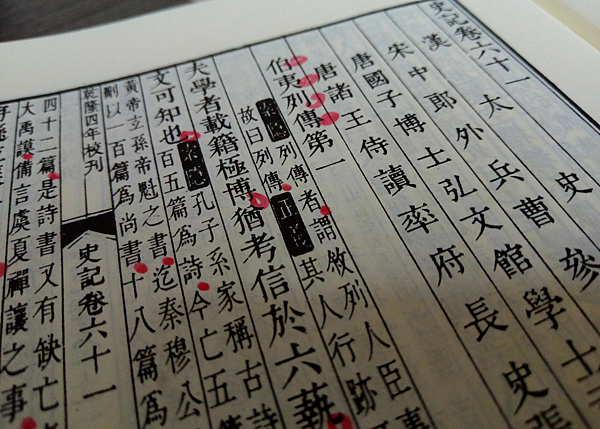 史記卷六十一
漢太史
宋中郎外兵曹參
唐國子博士弘文館學士
唐諸王侍讀率府長史張
伯夷列傳第一
索隱列傳者謂敘列人臣事
故曰列傳正義其人行跡
夫學者載籍極博猶考信於六蓺
文可知也索隱孔子系家稱古詩
百五篇為詩今亡五
黃帝玄孫帝魁之書迄秦穆公
刪以一百篇為尚書十八篇為
乾隆四年校刊
史記卷六十一
四十二篇是詩書又有缺亡
大禹謨備言虞夏禪讓之事